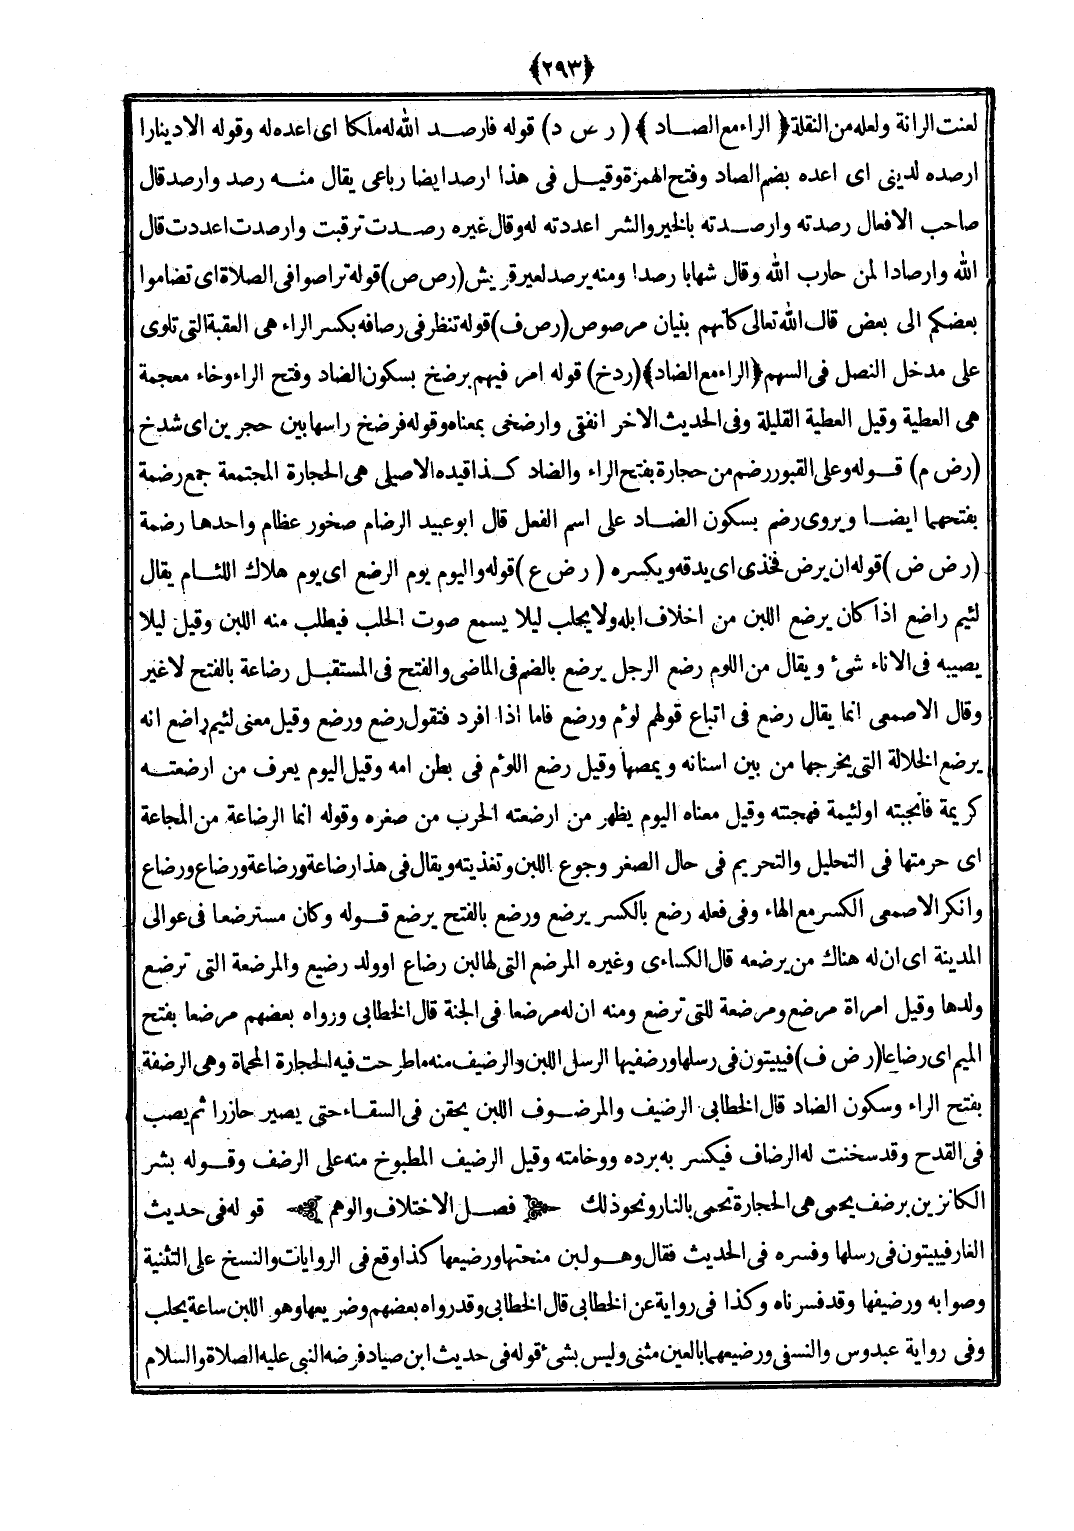 ﴿٢٩٣﴾
لعنت الرانة ولعله من النقلة ﴿ الراء مع الصاد ﴾ ( ر ص د ) قوله فارصد الله له ملكا اى اعده له وقوله الا دينارا
ارصده لدينى اى اعده بضم الصاد وفتح الهمزة وقيل فى هذا ارصد ايضا رباعى يقال منه رصد وارصد قال
صاحب الافعال رصدته وارصدته بالخير والشر اعددته له وقال غيره رصدت ترقبت وارصدت اعددت قال
الله وارصادا لمن حارب الله وقال شهابا رصدا ومنه يرصد لعير قريش (رص ص) قوله تراصوا فى الصلاة اى تضاموا
بعضكم الى بعض قال الله تعالى كأنهم بنيان مرصوص (رص ف) قوله تنظر فى رصافه بكسر الراء هى العقبة التى تلوى
على مدخل النصل فى السهم ﴿الراء مع الضاد﴾ (ردخ) قوله امر فيهم برضخ بسكون الضاد وفتح الراء وخاء معجمة
هى العطية وقيل العطية القليلة وفى الحديث الاخر انفقى وارضخى بمعناه وقوله فرضخ راسها بين حجرين اى شدخ
(رض م) قوله وعلى القبور رضم من حجارة بفتح الراء والضاد كذا قيده الاصيلى هى الحجارة المجتمعة جمع رضمة
بفتحهما ايضا ويروى رضم بسكون الضاد على اسم الفعل قال ابو عبيد الرضام صخور عظام واحدها رضمة
(رض ض) قوله ان يرض فخذى اى يدقه ويكسره ( رض ع ) قوله واليوم يوم الرضع اى يوم هلاك اللئام يقال
لئيم راضع اذا كان يرضع اللبن من اخلاف ابله ولا يحلب ليلا يسمع صوت الحلب فيطلب منه اللبن وقيل ليلا
يصيبه فى الاناء شىء ويقال من اللوم رضع الرجل يرضع بالضم فى الماضى والفتح فى المستقبل رضاعة بالفتح لا غير
وقال الاصمعى انما يقال رضع فى اتباع قولهم لوءم ورضع فاما اذا افرد فتقول رضع ورضع وقيل معنى لئيم راضع انه
يرضع الخلالة التى يخرجها من بين اسنانه ويمصها وقيل رضع اللوءم فى بطن امه وقيل اليوم يعرف من ارضعته
كريمة فانجبته او لئيمة فهجنته وقيل معناه اليوم يظهر من ارضعته الحرب من صغره وقوله انما الرضاعة من المجاعة
اى حرمتها فى التحليل والتحريم فى حال الصغر وجوع اللبن وتغذيته ويقال فى هذا رضاعة ورضاعة ورضاع ورضاع
وانكر الاصمعى الكسر مع الهاء وفى فعله رضع بالكسر يرضع ورضع بالفتح يرضع قوله وكان مسترضعا فى عوالى
المدينة اى ان له هناك من يرضعه قال الكساءى وغيره المرضع التى لها لبن رضاع او ولد رضيع والمرضعة التى ترضع
ولدها وقيل امراة مرضع ومرضعة للتى ترضع ومنه ان له مرضعا فى الجنة قال الخطابى ورواه بعضهم مرضعا بفتح
الميم اى رضاعا (رض ف) فيبيتون فى رسلها ورضفيها الرسل اللبن والرضيف منه ما طرحت فيه الحجارة المحماة وهى الرضفة
بفتح الراء وسكون الضاد قال الخطابى الرضيف والمرضوف اللبن يحقن فى السقاء حتى يصير حازرا ثم يصب
فى القدح وقد سخنت له الرضاف فيكسر به برده ووخامته وقيل الرضيف المطبوخ منه على الرضف وقوله بشر
الكانزين برضف يحمى هى الحجارة تحمى بالنار ونحو ذلك فصل الاختلاف والوهم قوله فى حديث
الغار فيبيتون فى رسلها وفسره فى الحديث فقال وهو لبن منحتها ورضيعها كذا وقع فى الروايات والنسخ على التثنية
وصوابه ورضيفها وقد فسرناه وكذا فى رواية عن الخطابى قال الخطابى وقد رواه بعضهم وضريعها وهو اللبن ساعة يحلب
وفى رواية عبدوس والنسفى ورضيعهما بالعين مثنى وليس بشىء قوله فى حديث ابن صياد فرضه النبى عليه الصلاة والسلام